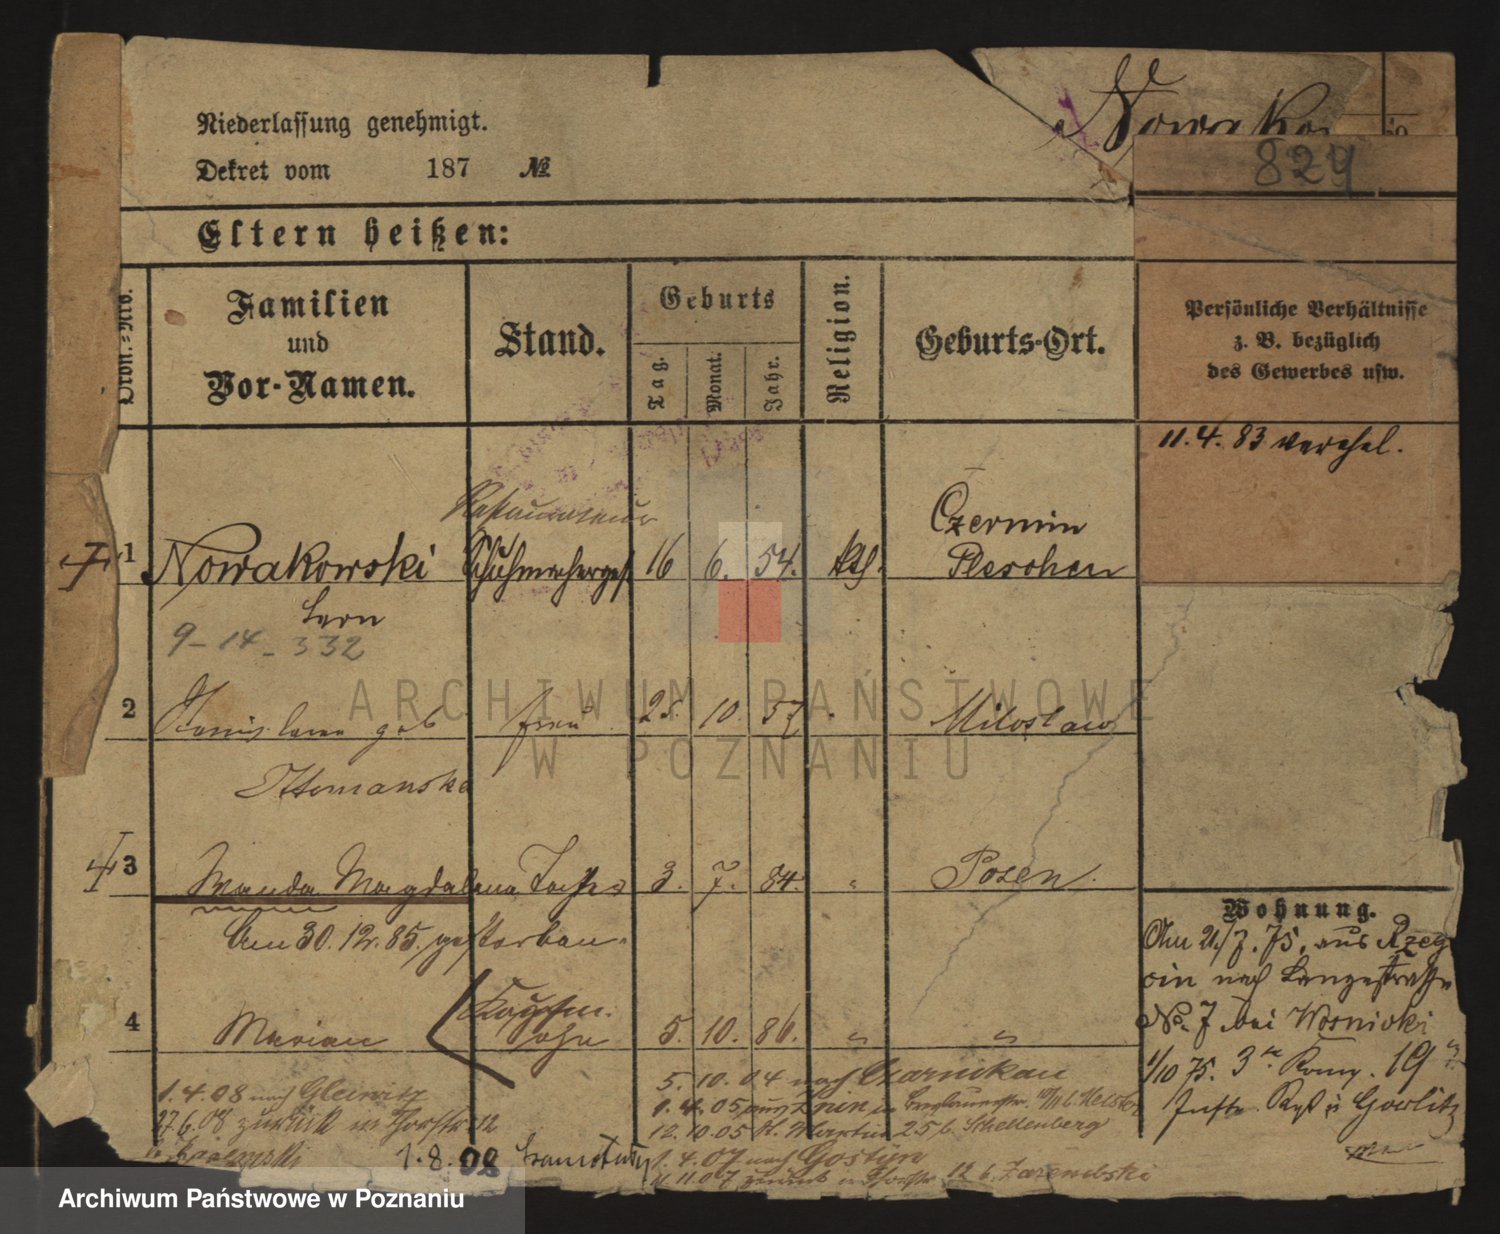 Niederlassung genehmigt.
Dekret vom 187 №
Nowako
829
Eltern heißen:
Ordn.-Nro.
Familien
und
Vor-Namen.
Stand.
Geburts
Tag.
Monat.
Jahr.
Religion.
Geburts-Ort.
Persönliche Verhältnisse
z. B. bezüglich
des Gewerbes usw.
11. 4. 83 verehel.
Restaurateur
Czermin
1 Nowakowski Schuhmacherges. 16 6. 54. kth. Pleschen
Leon
9-14-332
2 Stanislawa geb Frau 28. 10. 57 Miloslaw
Ottomanska
3 Wanda Magdalena Tochter 3. 7. 84. " Posen.
Am 30. 12. 85. gestorben.
4 Marian Sohn 5. 10. 86. " "
Wohnung.
Am 21/7. 75. aus
nach Langestraße
No. 7 bei
1/10 75. 3 Komp. 19
Görlitz
1.4.08 nach Gleiwitz
27.6.08 zurück in Thorstr. 12
1.8.08
5. 10. 04 nach Czarnikau
1. 4. 05 aus Znin in
12. 10. 05 St. Martin 25 b. Schellenberg
1. 4. 07 nach Gostyn
11. 07 zurück in Thorstr. 12 b.
ARCHIWUM PAŃSTWOWE
W POZNANIU
Archiwum Państwowe w Poznaniu